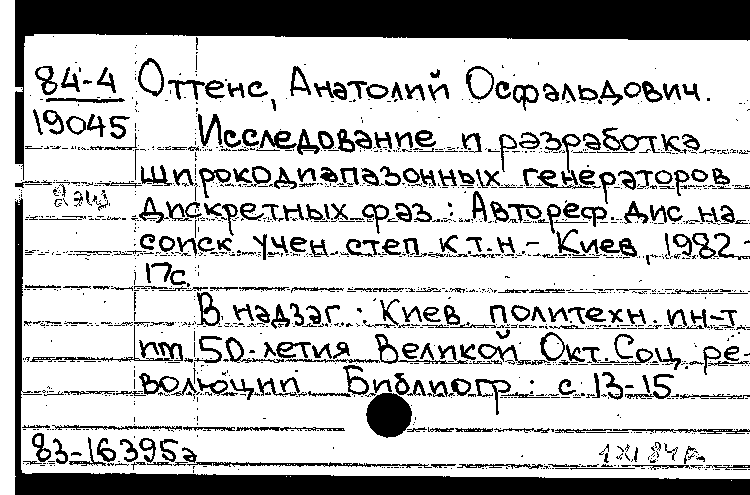 84-4 Оттенс, Анатолий Осфальдович.
19045 Исследование и разработка
широкодиапазонных генераторов
2 экз
дискретных фаз : Автореф. дис на
соиск. учен степ к.т.н - Киев, 1982 -
17с.
В надзаг : Киев. политехн. ин-т
им 50-летия Великой Окт. Соц. ре-
волюции Библиогр : с. 13-15
83-16395а